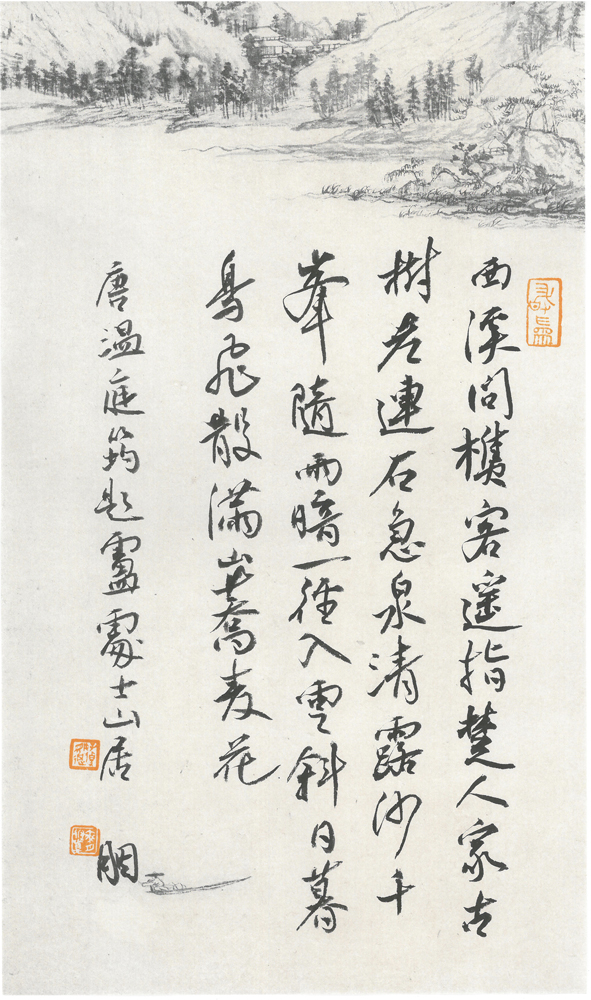 西溪問樵客遙指楚人家古
樹老連石急泉清露沙千
峯隨雨暗一徑入雲斜日暮
鳥飛散滿山蕎麥花
唐温庭筠題盧處士山居